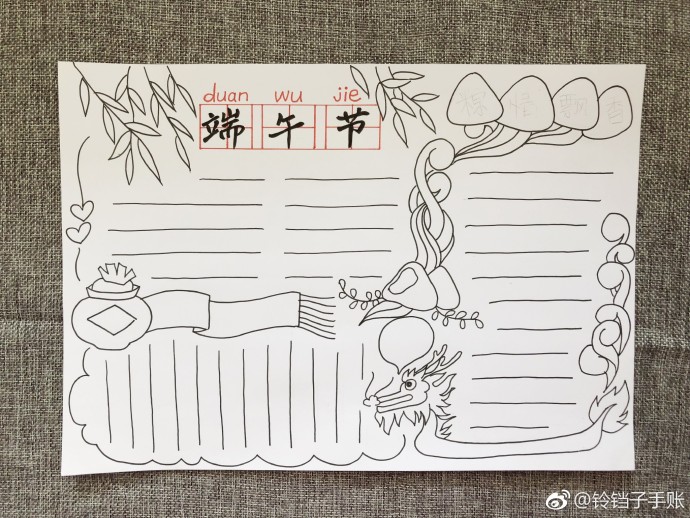 duan wu jie
端午节
粽 飘 香
@铃铛子手账